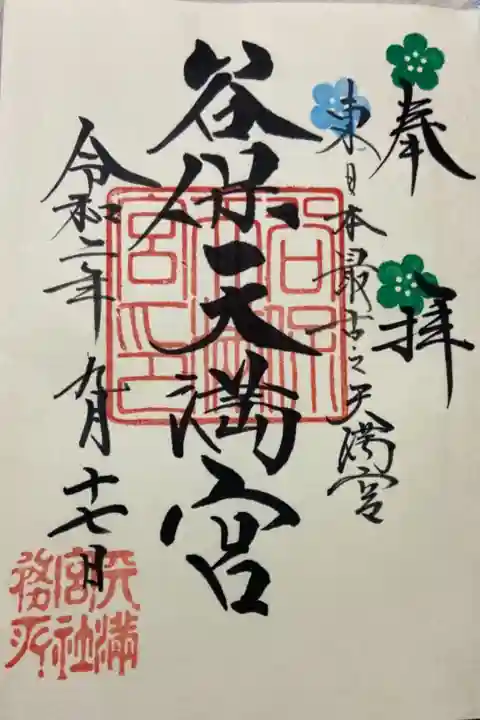 奉拝
東日本最古之天満宮
谷保天満宮
令和二年九月十七日
谷保天満宮印
天満宮社務所